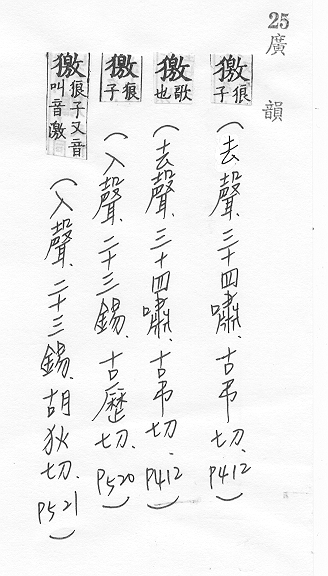 25廣韻
獥狼子（去聲、三十四嘯、古弔切、P412）
獥歌也（去聲、三十四嘯、古弔切、P412）
獥狼子（入聲、二十三錫、古歷切、P520）
獥狼子又音叫音激（入聲、二十三錫、胡狄切、P521）